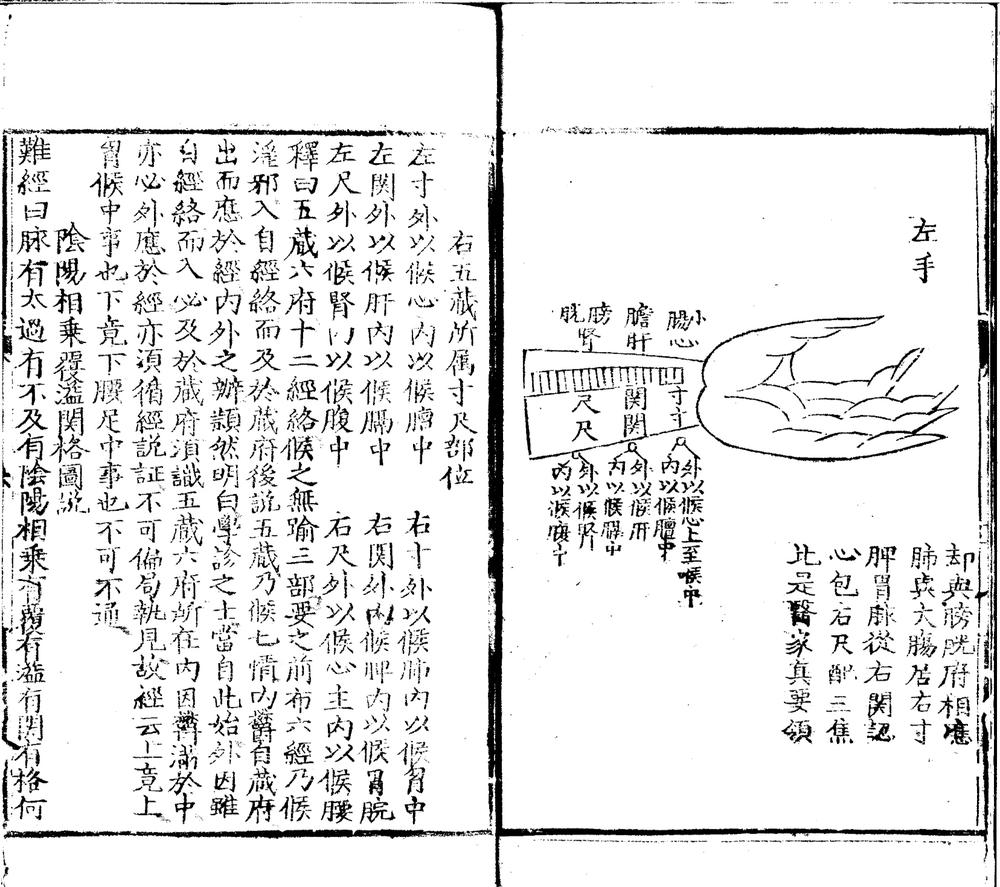 左手
小腸心
膽肝
膀胱腎
寸寸
関関
尺尺
外以候心上至喉中
内以候膻中
外以候肝
内以候膈中
外以候腎
内以候腹中
却與膀胱府相應
肺與大腸居右寸
脾胃脉從右関認
心包右尺配三焦
此是醫家真要領
右五蔵所属寸尺部位
左寸外以候心内以候膻中　右寸外以候肺内以候胷中
左関外以候肝内以候膈中　右関外以候脾内以候胃脘
左尺外以候腎内以候腹中　右尺外以候心主内以候腰
釋曰五蔵六府十二經絡候之無踰三部要之前布六經乃候
淫邪入自經絡而及於蔵府後説五蔵乃候七情内欝自蔵府
出而應於經内外之辨頴然明白學診之士當自此始外因雖
自經絡而入必及於蔵府湏識五蔵六府所在内因欝滿於中
亦必外應於經亦須循經説証不可偏局執見故經云上竟上
胷候中事也下竟下腰足中事也不可不通
陰陽相乗覆溢関格圖説
難經曰脉有太過有不及有陰陽相乗有覆有溢有関有格何